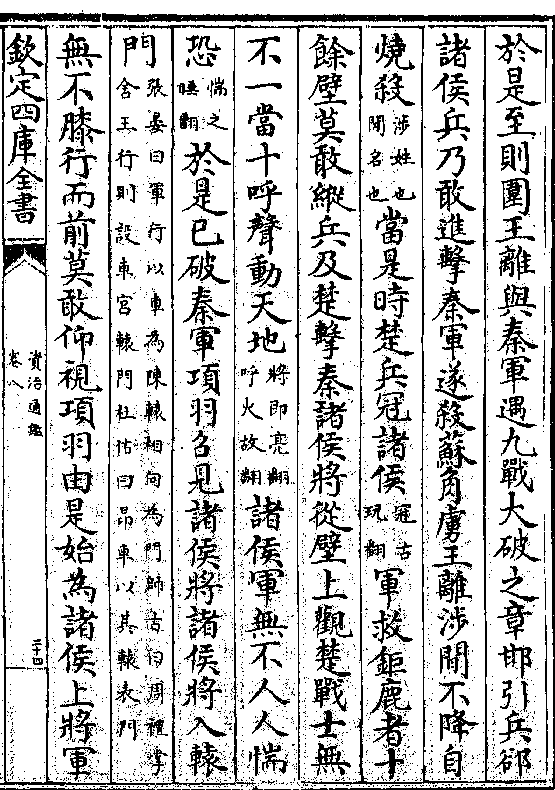 於是至則圍王離與秦軍遇九戰大破之章邯引兵郤
諸侯兵乃敢進擊秦軍遂殺蘇角虜王離涉閒不降自
燒殺涉姓也閒名也當是時楚兵冠諸侯冠古玩翻軍救鉅鹿者十
餘壁莫敢縱兵及楚擊秦諸侯將從壁上觀楚戰士無
不一當十呼聲動天地將即亮翻呼火故翻諸侯軍無不人人惴
恐惴之睡翻於是已破秦軍項羽召見諸侯將諸侯將入轅
門張晏曰軍行以車為陳轅相向為門師古曰周禮掌舍王行則設車宮轅門杜佑曰昂車以其轅表門
無不膝行而前莫敢仰視項羽由是始為諸侯上將軍
欽定四庫全書
資治通鑑
卷八
二十四